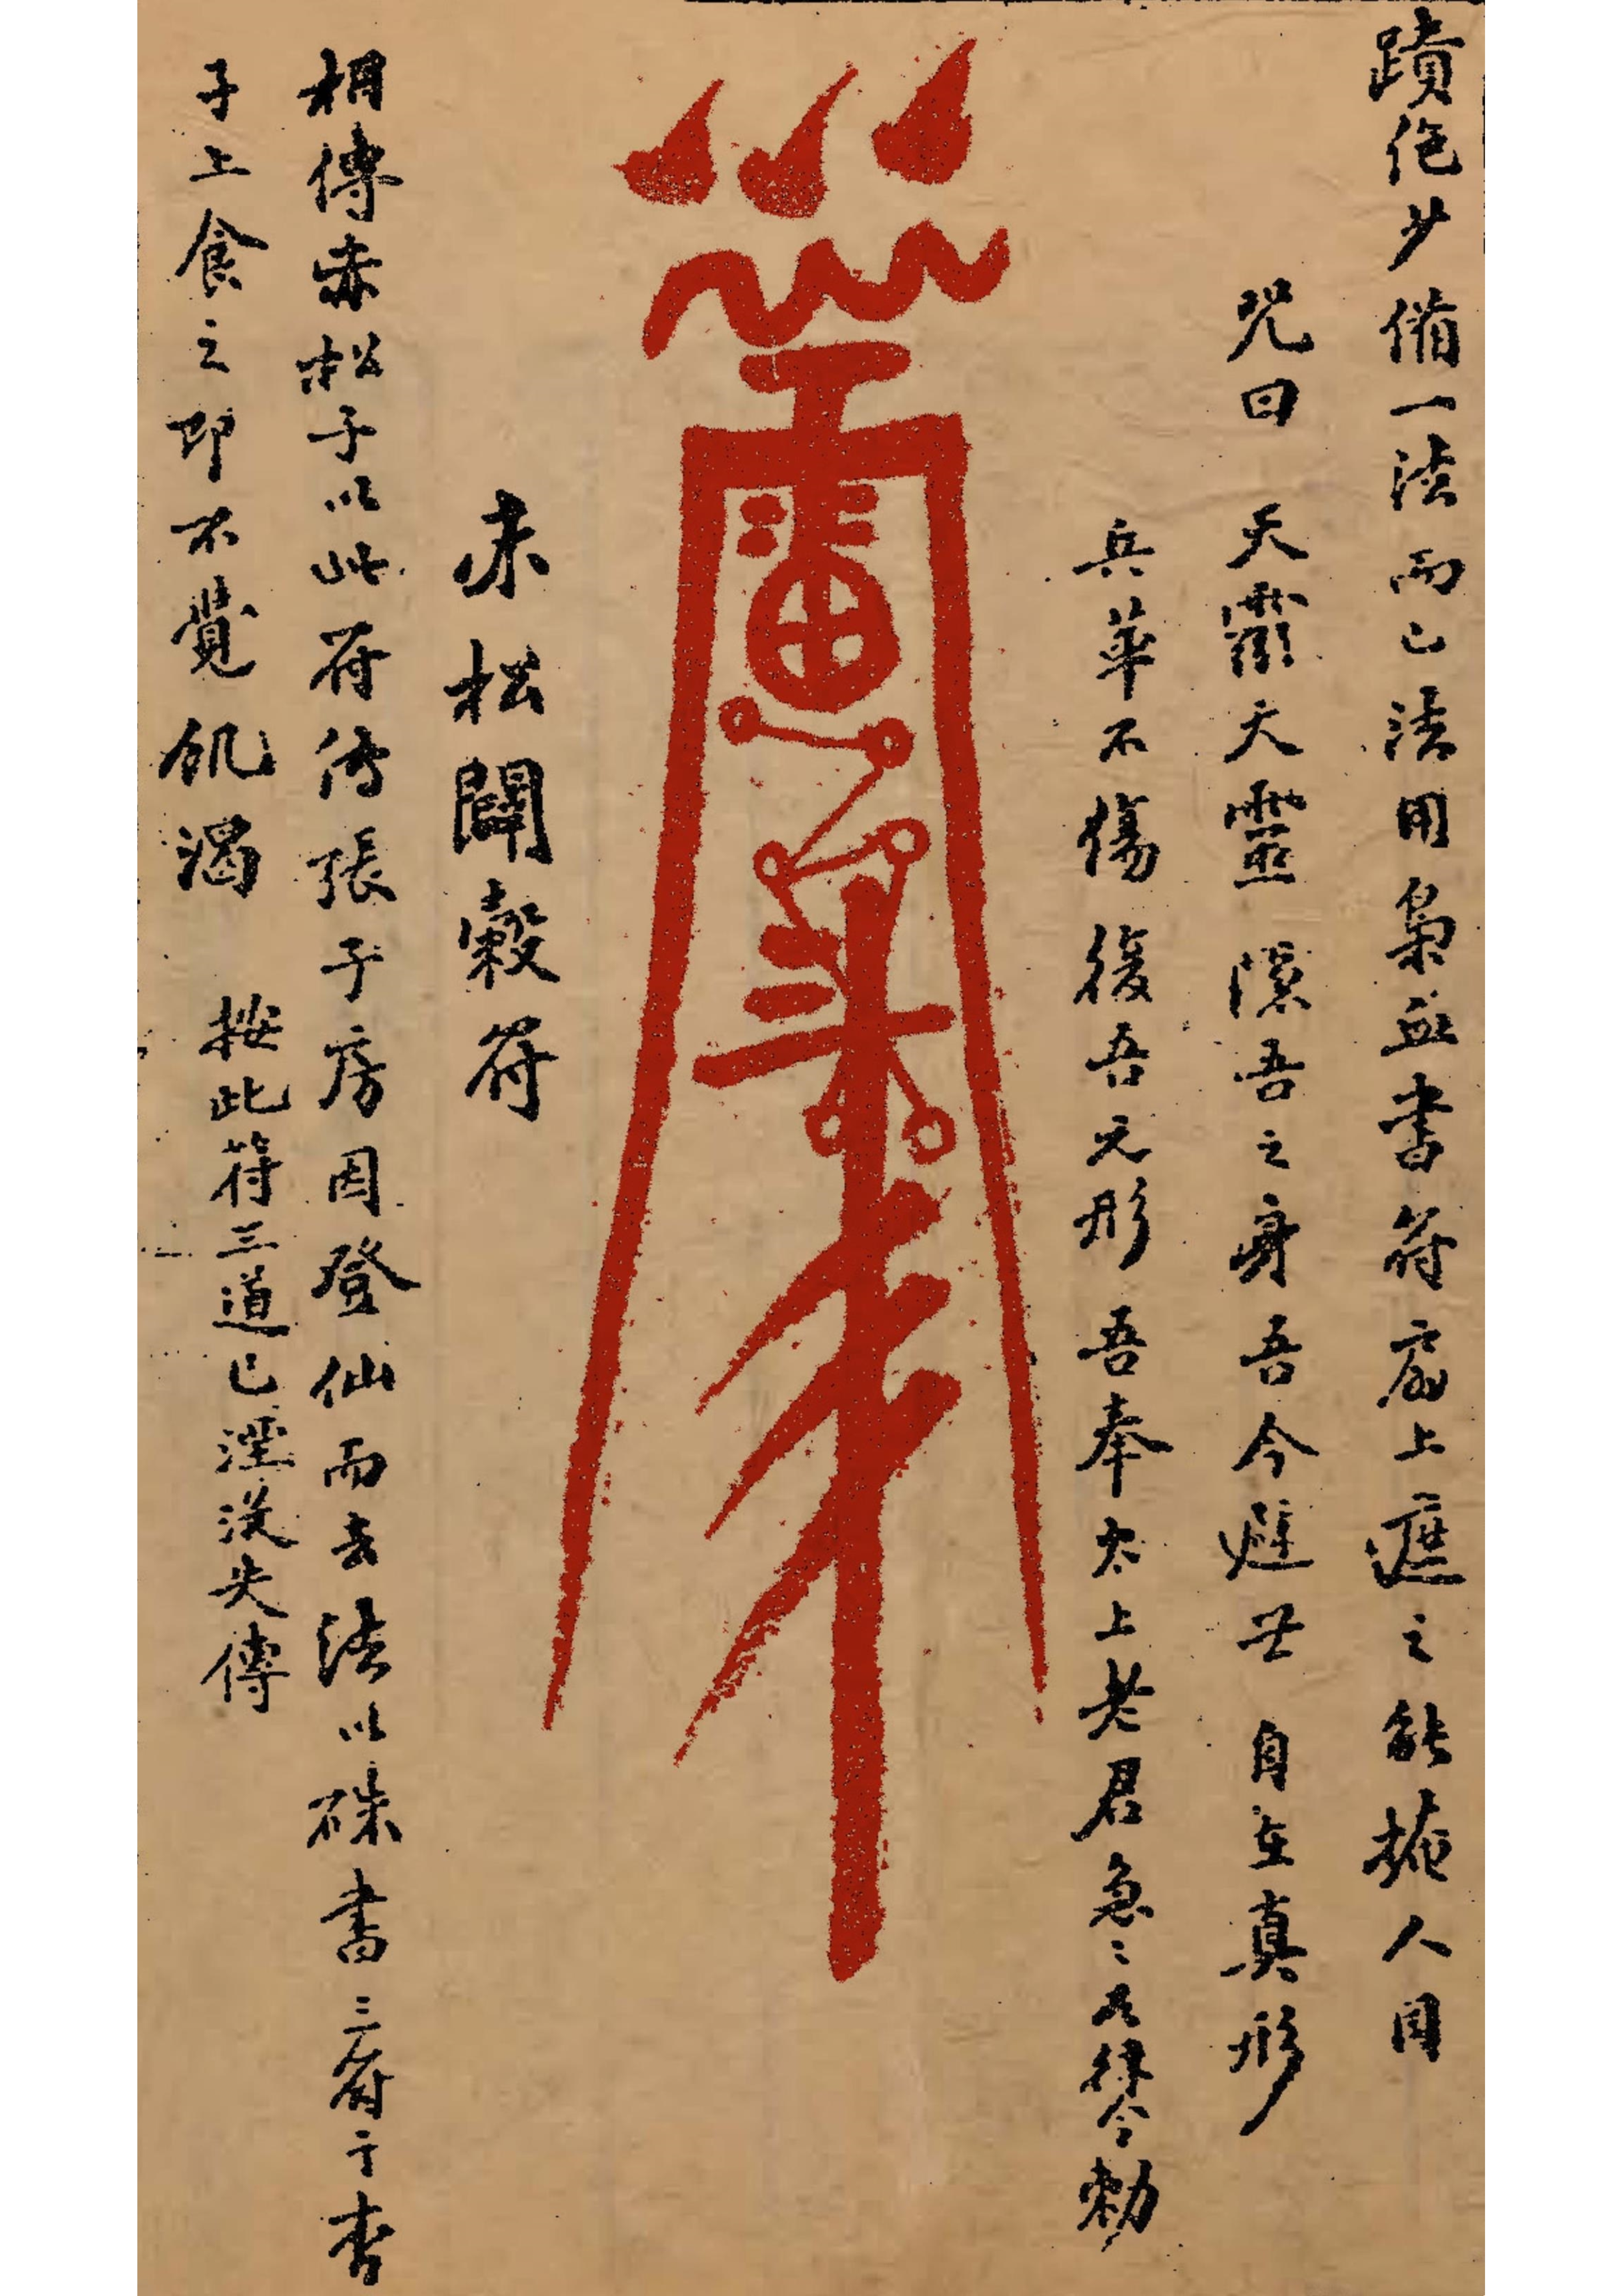 蹟絶少備一法而已法用梟血書符扇上遮之能掩人目
咒曰 天靈天靈 隱吾之身吾今避世 自在真形
兵革不傷 復吾元形 吾奉太上老君急〻如律令勅
赤松闢穀符
相傳赤松子以此符傳張子房因登仙而去法以硃書三符于杏
子上食之即不覺飢渴 按此符三道已湮没失傳